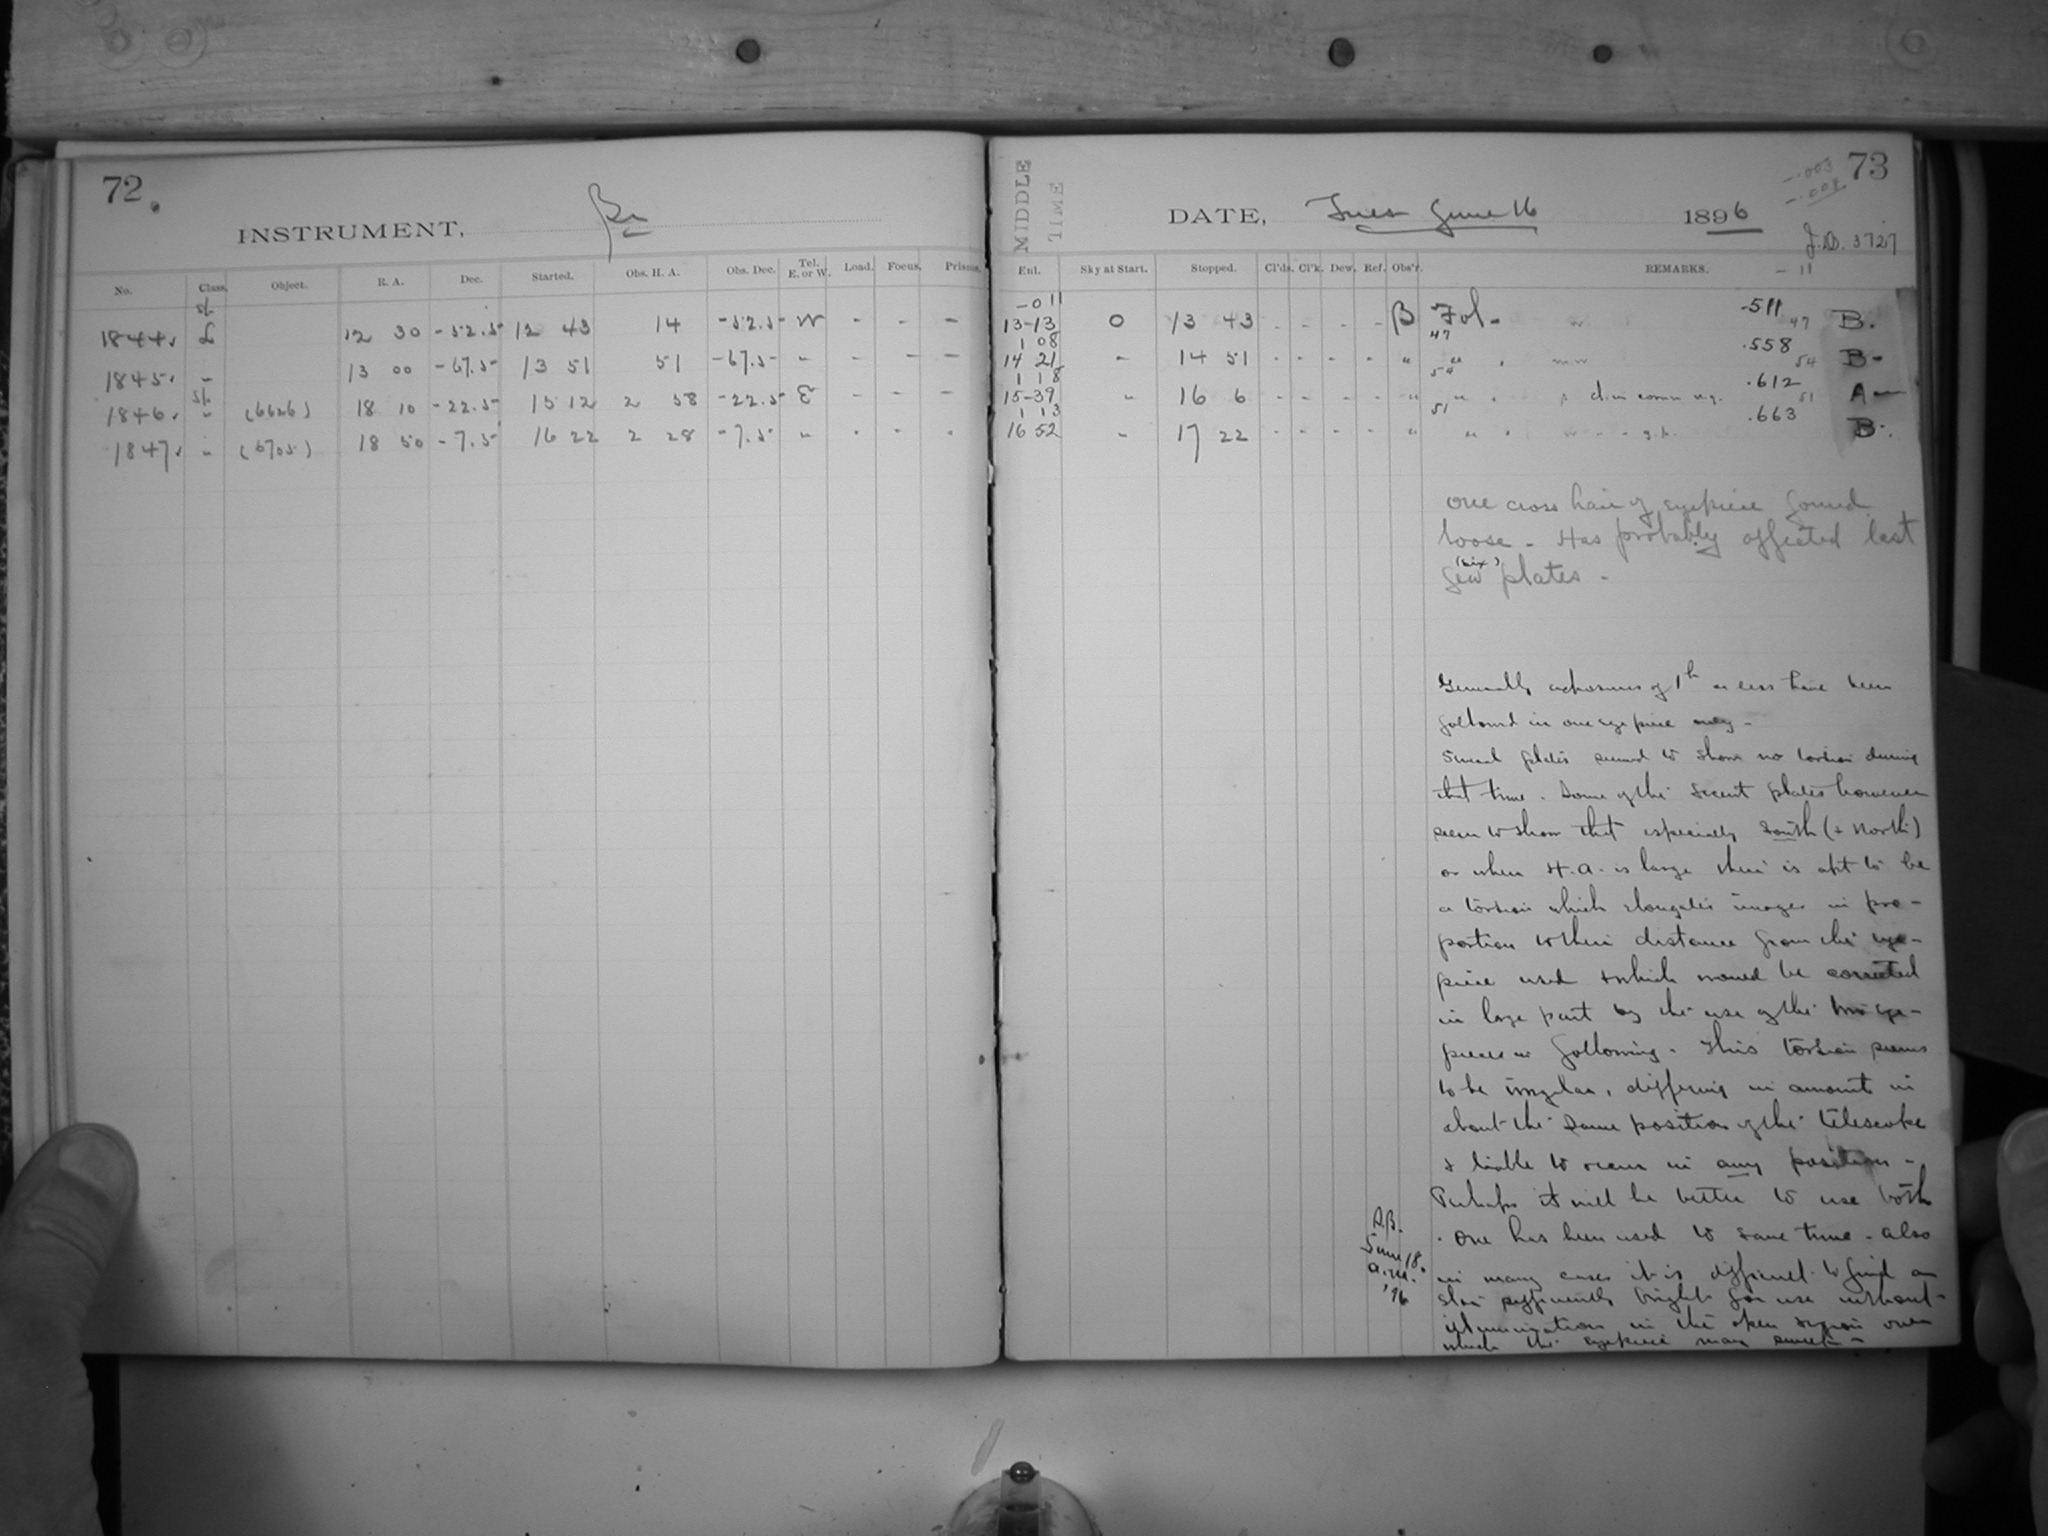 72.
INSTRUMENT,
No. Class. Object. R. A. Dec. Started. Obs. H. A. Obs. Dec. Tel. E. or W. Load. Focus. Prisms.
1844. 12 30 -52.5 12 43 14 -52.5 W - - -
1845. " 13 00 -67.5 13 51 51 -67.5 " - - -
1846. " (6626) 18 10 -22.5 15 12 2 58 -22.5 E - - -
1847. " (6705) 18 50 -7.5 16 22 2 28 -7.5 " - - -
73
-.003
-.008
MIDDLE
TIME
DATE, Tues June 16 1896
J.D. 3727
Enl. Sky at Start. Stopped. Cl'ds. Cl'k. Dew. Ref. Obs'r. REMARKS. - 11
-011
13-13 0 13 43 - - - - B Fol. .511 B.
1 08 47 47
14 21 " 14 51 - - - - " " .558 B-
1 18 54 54
15-39 " 16 6 - - - - " " .612 A-
1 13 51 51
16 52 " 17 22 - - - - " " .663 B-.
One cross hair of eyepiece found
loose - Has probably affected last
(six)
few plates -
Generally exposures of 1h or less have been
followed in one eyepiece only -
Several plates seemed to show no torsion during
that time. Some of the recent plates however
seem to show that especially South (& North)
or when H.A. is large there is apt to be
a torsion which elongates images in pro-
portion to their distance from the eye-
piece used & which would be corrected
in large part by the use of the two eye-
pieces in following. This torsion seems
to be irregular, differing in amount in
about the same position of the telescope
& liable to occur in any position -
Perhaps it will be better to use both
. One has been used to save time - Also
in many cases it is difficult to find a
star sufficiently bright for use without
illumination in the open region over
which the eyepiece may
A.B.
June 18.
a.m.
'96